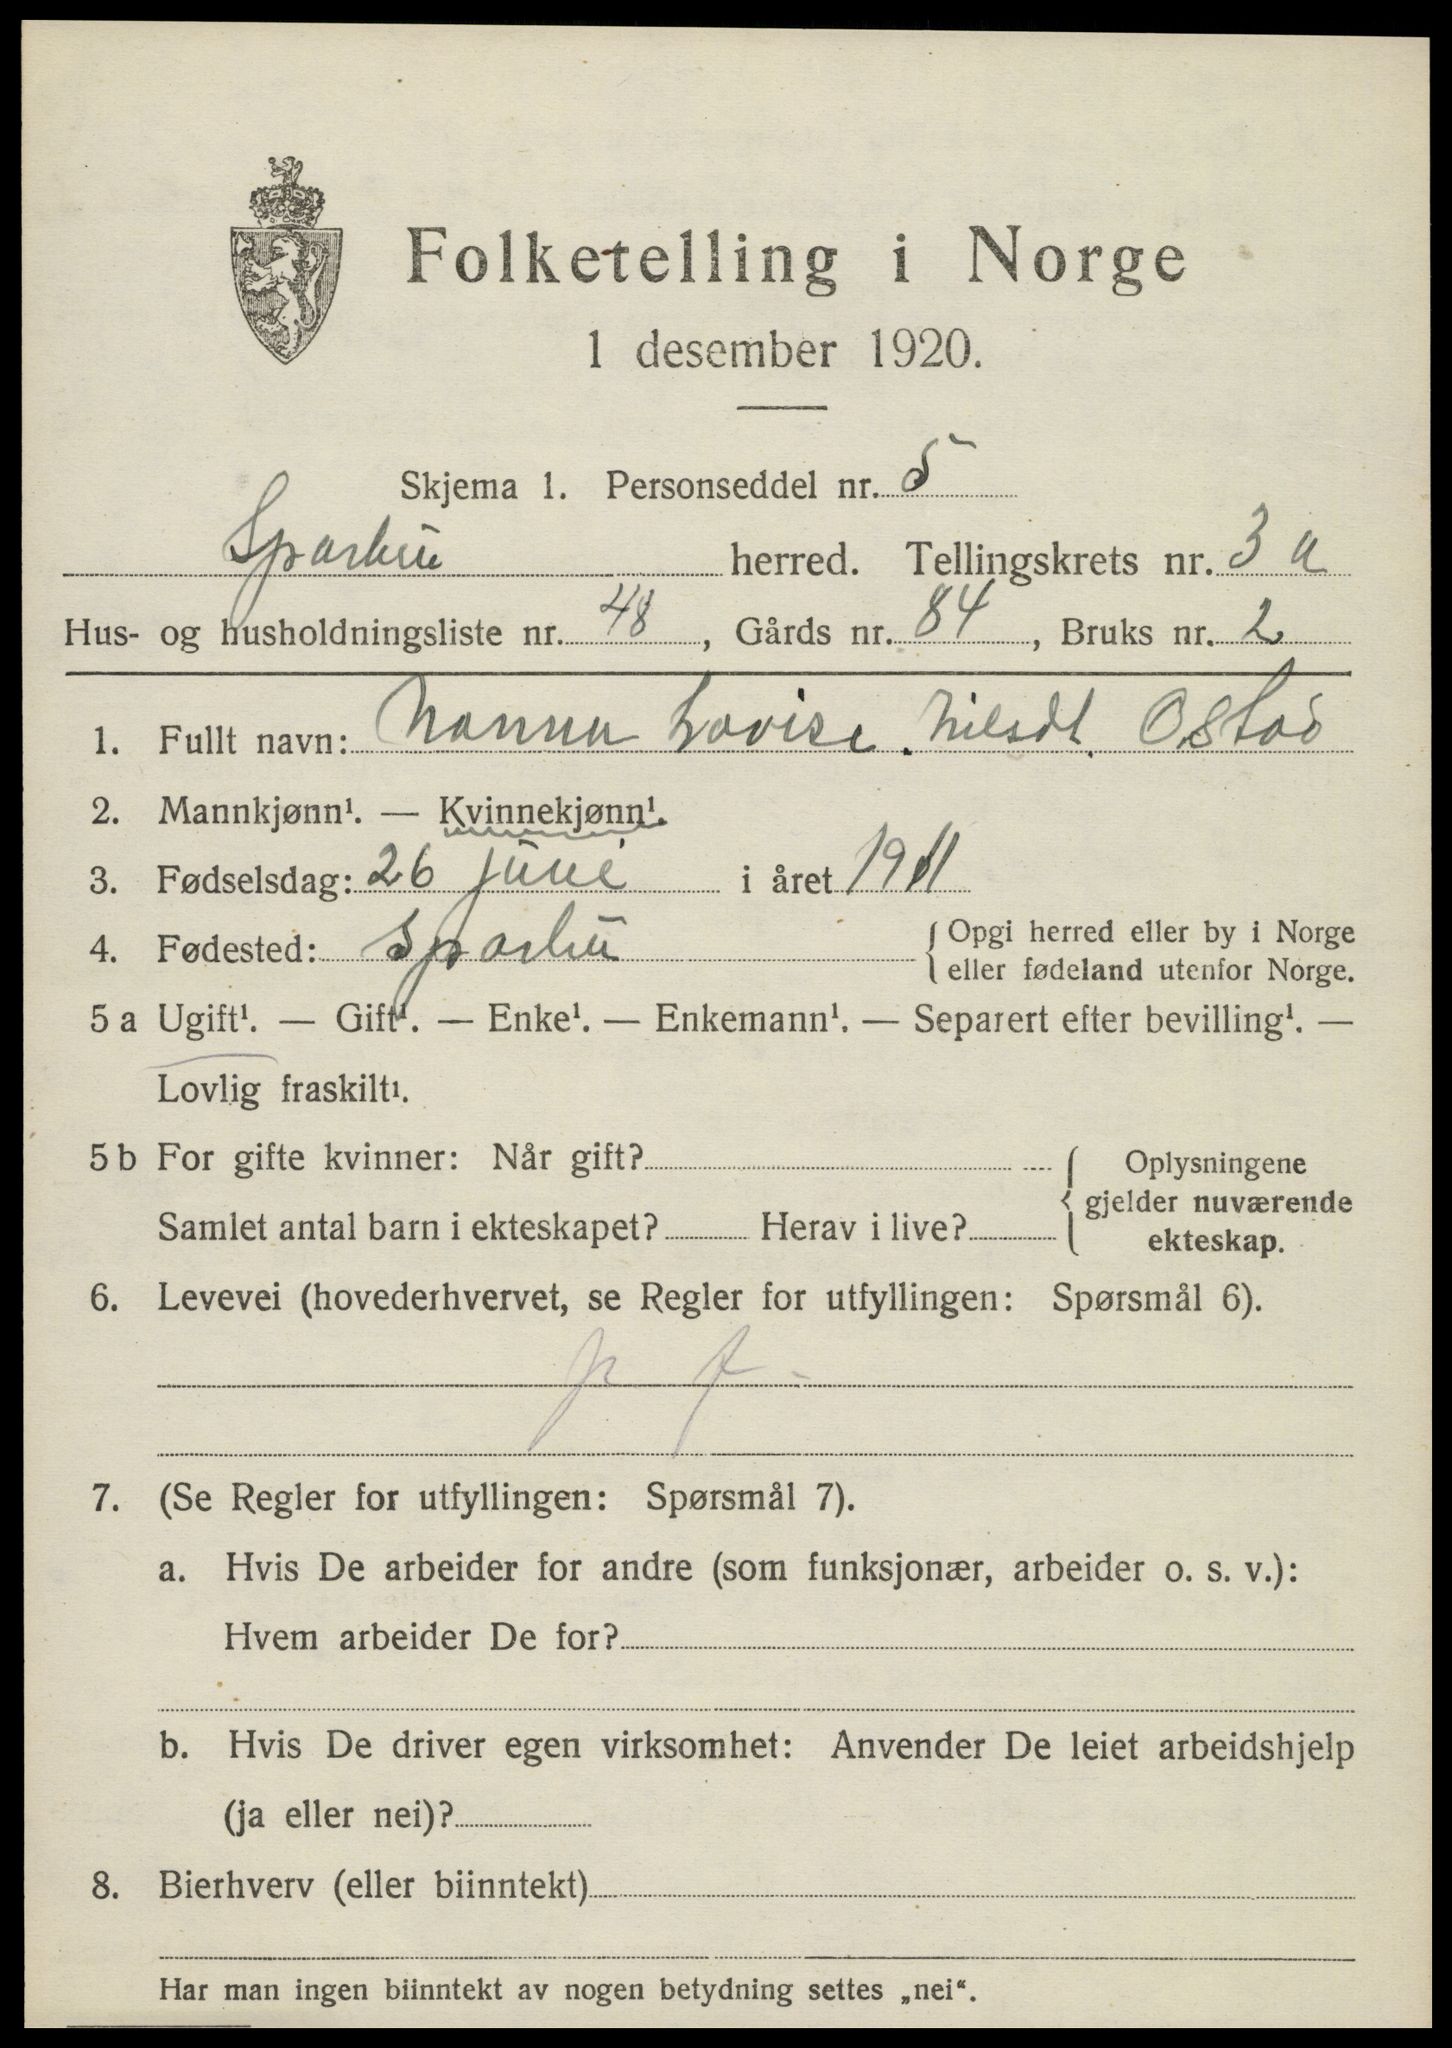 Folketelling i Norge
1 desember 1920.
Skjema 1. Personseddel nr. 5
Sparbu herred. Tellingskrets nr. 3 a
Hus- og husholdningsliste nr. 48, Gårds nr. 84, Bruks nr. 2
1. Fullt navn: Nanna Lovise. Nilsdt.
2. Mannkjønn¹. — Kvinnekjønn¹.
3. Fødselsdag: 26 juni i året 1911
4. Fødested: Sparbu { Opgi herred eller by i Norge
eller fødeland utenfor Norge.
5 a Ugift¹. — Gift¹. — Enke¹. — Enkemann¹. — Separert efter bevilling¹. —
Lovlig fraskilt¹.
5 b For gifte kvinner: Når gift? { Oplysningene
gjelder nuværende
Samlet antal barn i ekteskapet? Herav i live?
ekteskap.
6. Levevei (hovederhvervet, se Regler for utfyllingen: Spørsmål 6).
7. (Se Regler for utfyllingen: Spørsmål 7).
a. Hvis De arbeider for andre (som funksjonær, arbeider o. s. v.):
Hvem arbeider De for?
b. Hvis De driver egen virksomhet: Anvender De leiet arbeidshjelp
(ja eller nei)?
8. Bierhverv (eller biinntekt)
Har man ingen biinntekt av nogen betydning settes „nei“.